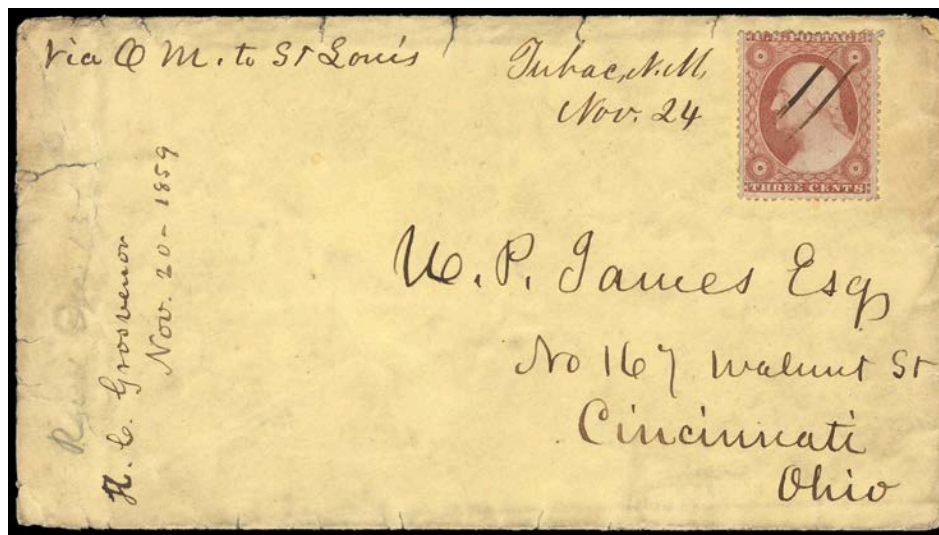 Via O M. to St Louis
Tubac, N.M,
Nov. 24
THREE CENTS
U. P. James Esq
No 167 Walnut St
Cincinnati
Ohio
H. C. Grosvenor
Nov. 20 - 1859